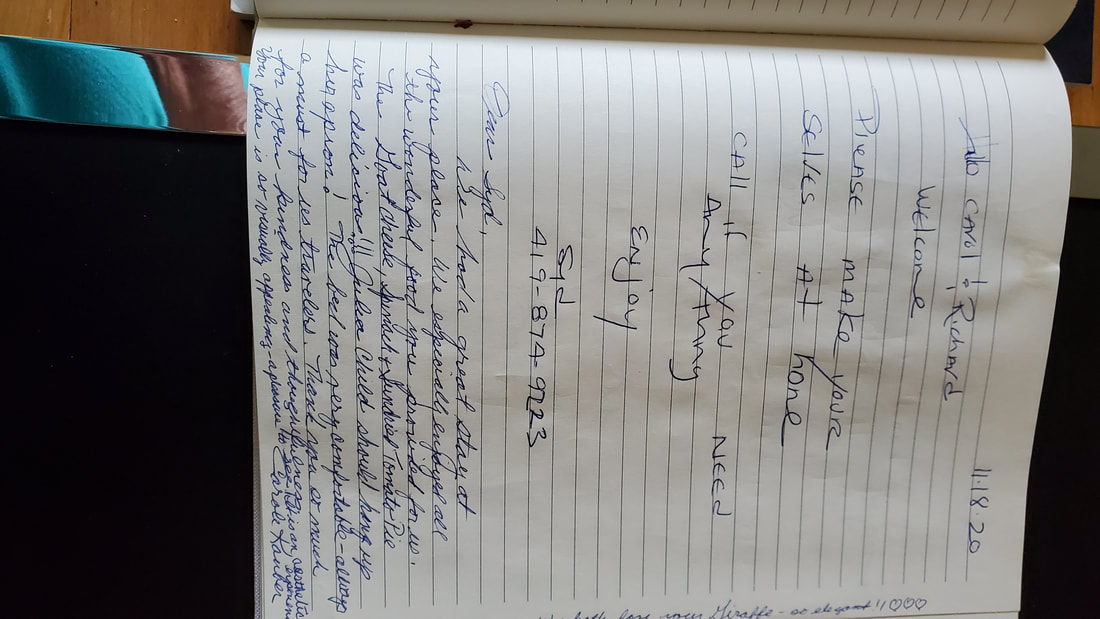 11.18.20
Hello Carol & Richard
Welcome
Please make your
selves at home
Call if you need
Any thing
Enjoy
Syd
419-874-9723
Dear Syd,
We had a great stay at
your place. We especially enjoyed all
the wonderful food you provided for us.
The Goat cheese, Spinach & Sundried Tomato Pie
was delicious!!! Julia Child should hang up
her apron! The bed was very comfortable - always
a must for us travelers. Thank you so much
for your kindness and thoughtfulness
Your place is so visually appealing - a pleasure to see
This is an aesthetic
experience
Carole
love your Giraffe - so elegant!! ♡♡♡